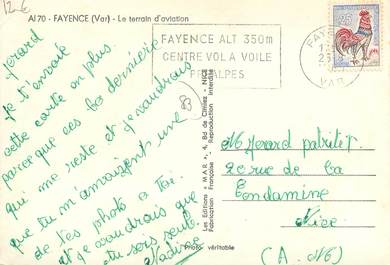 12€
Al 70 - FAYENCE (Var) - Le terrain d'aviation
FAYENCE ALT 350m
CENTRE VOL A VOILE
PREALPES
FAYENCE
VAR
25
83
Gérard
Je t'envoie
cette carte en plus
parce que ces la dernière
qui me reste et je voudrais
que tu m'envoigent une
de tes photo à Toi.
et je voudrais que
tu sois seul
Nadine
Les Editions " MAR ", 4, Bd de Cimiez - NICE
Fabrication Française - Reproduction interdite
Photo véritable
M Gerard
2 rue de la
Condamine
Nice
(A.M)